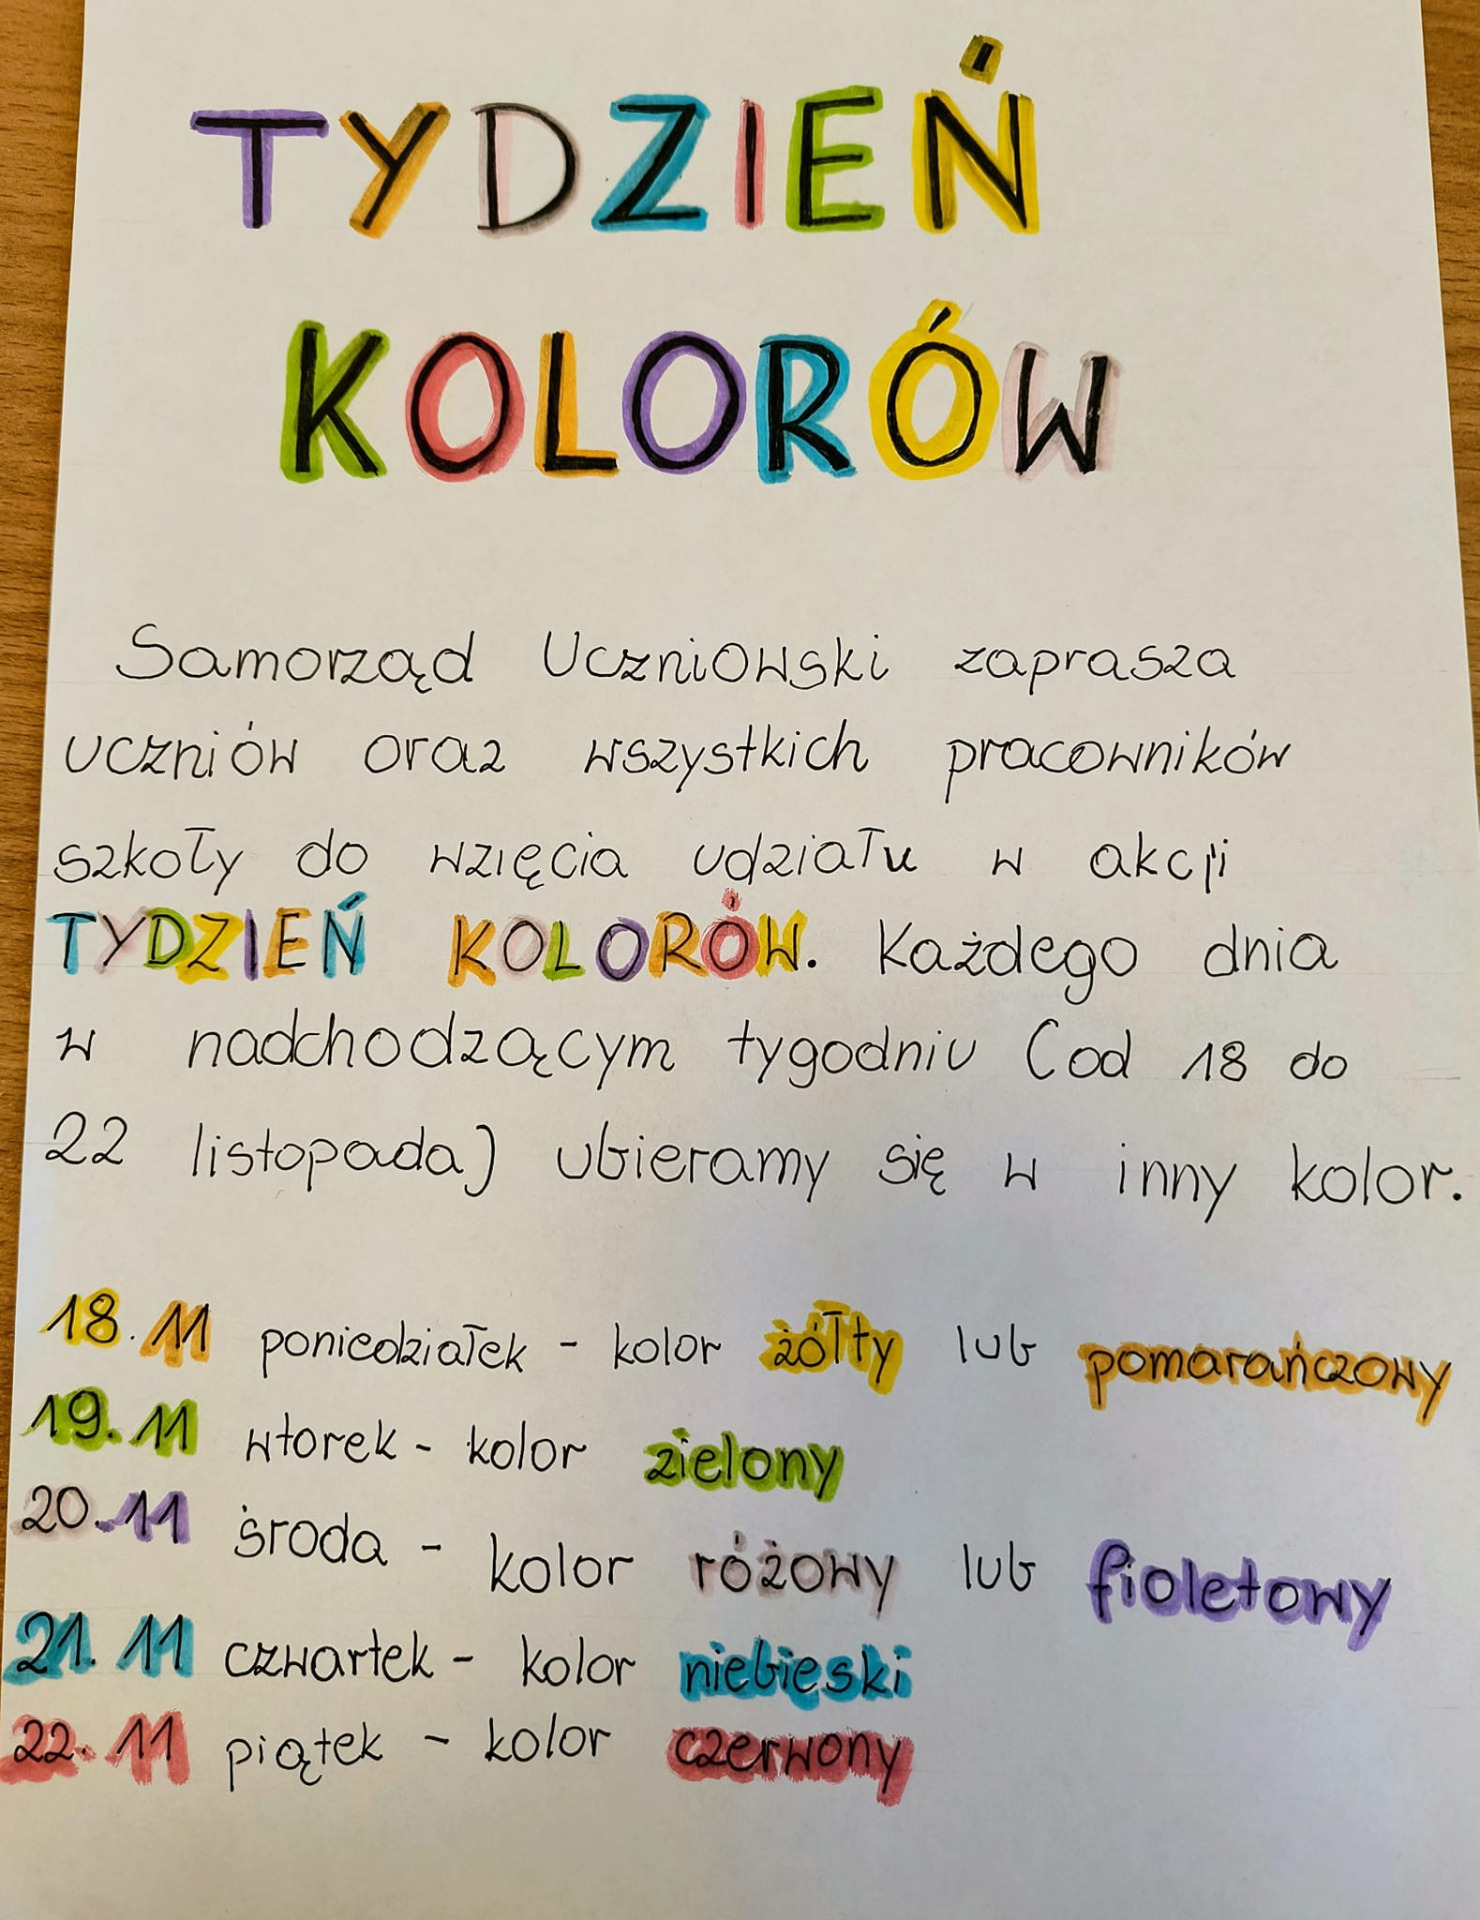 TYDZIEŃ
KOLORÓW
Samorząd Uczniowski zaprasza
uczniów oraz wszystkich pracowników
szkoły do wzięcia udziału w akcji
TYDZIEŃ KOLORÓW. Każdego dnia
w nadchodzącym tygodniu (od 18 do
22 listopada) ubieramy się w inny kolor.
18.11 poniedziałek - kolor żółty lub pomarańczowy
19.11 wtorek - kolor zielony
20.11 środa - kolor różowy lub fioletowy
21.11 czwartek - kolor niebieski
22.11 piątek - kolor czerwony